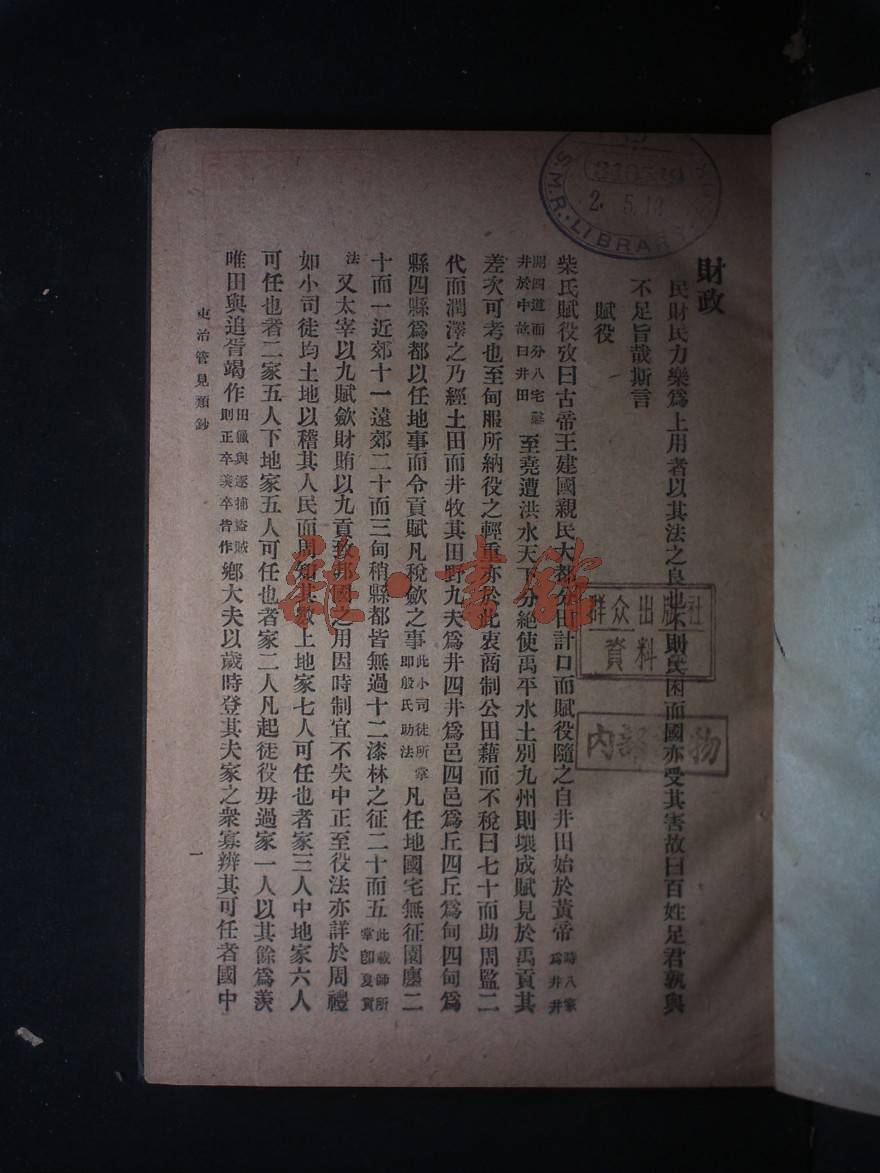 財政
民財民力樂爲上用者以其法之良也不則民困而國亦受其害故曰百姓足君孰與
不足旨哉斯言
賦役
柴氏賦役攷曰古帝王建國親民大都分田計口而賦役隨之自井田始於黃帝時八家爲井井
開四道而分八宅鑿井於中故曰井田至堯遭洪水天下分絕使禹平水土別九州則壤成賦見於禹貢其
差次可考也至甸服所納役之輕重亦於此衷商制公田藉而不稅曰七十而助周監二
代而潤澤之乃經土田而井牧其田野九夫爲井四井爲邑四邑爲丘四丘爲甸四甸爲
縣四縣爲都以任地事而令貢賦凡稅斂之事此小司徒所掌即殷氏助法凡任地國宅無征園廛二
十而一近郊十一遠郊二十而三甸稍縣都皆無過十二漆林之征二十而五此載師所掌即夏貢
法又太宰以九賦斂財賄以九貢致邦國之用因時制宜不失中正至役法亦詳於周禮
如小司徒均土地以稽其人民而周知其數上地家七人可任也者家三人中地家六人
可任也者二家五人下地家五人可任也者家二人凡起徒役毋過家一人以其餘爲羨
唯田與追胥竭作田儀與逐捕盜賊則正卒羨卒皆作鄉大夫以歲時登其夫家之衆寡辨其可任者國中
吏治管見類鈔
一
S.M.R. LIBRARY
2. 5. 13
群众出版社
資料
内部
物
雜·書館